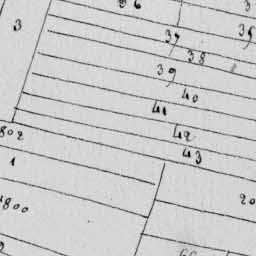 36
3
37
35
38
39
40
41
42
802
43
1
20
1800